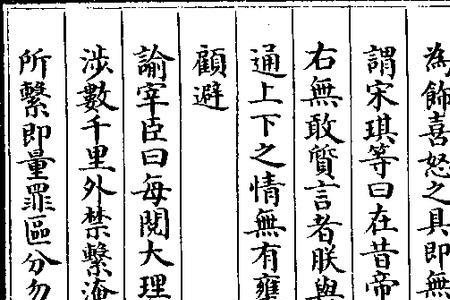 為飾喜怒之具即無
謂宋琪等曰在昔帝
右無敢質言者朕與
通上下之情無有壅
顧避
諭宰臣曰每閱大理
涉數千里外禁繫淹
所繫即量罪區分勿